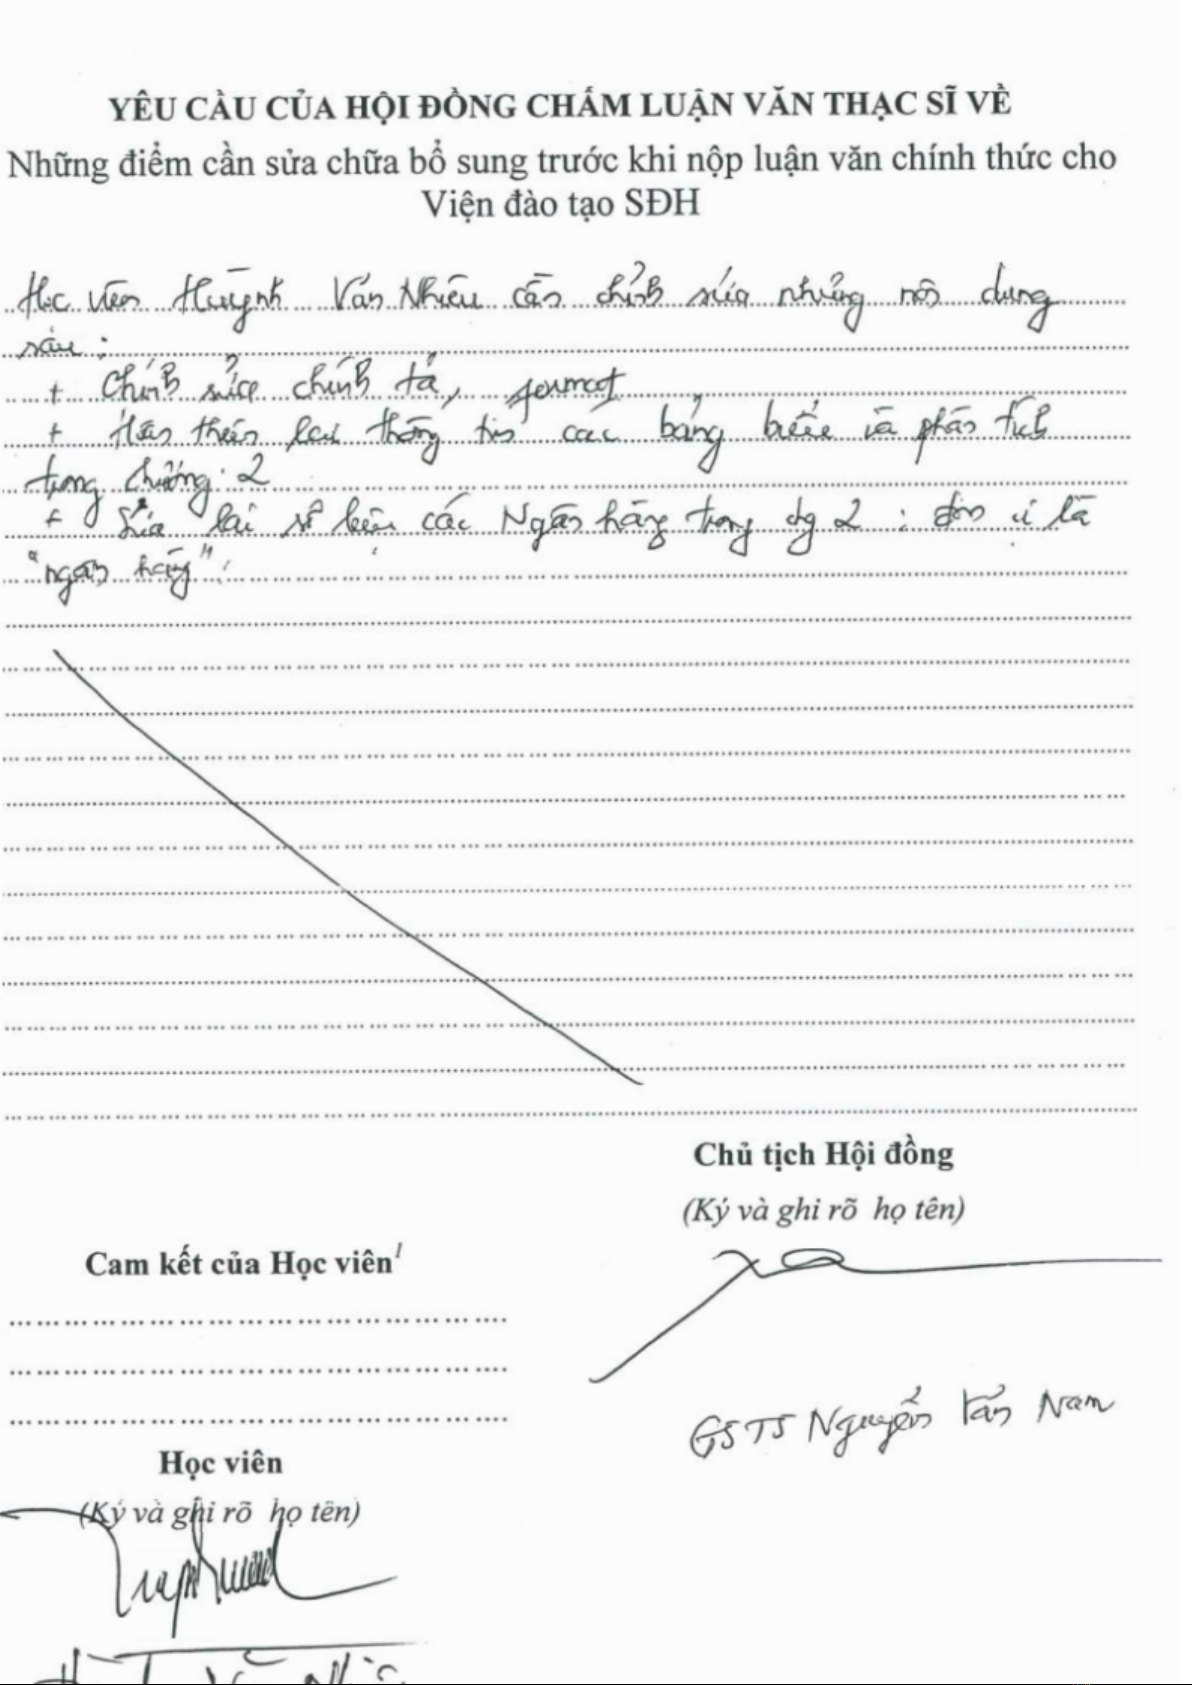 YÊU CẦU CỦA HỘI ĐỒNG CHẤM LUẬN VĂN THẠC SĨ VỀ
Những điểm cần sửa chữa bổ sung trước khi nộp luận văn chính thức cho
Viện đào tạo SĐH
Học viên Huỳnh Văn Nhiều cần chỉnh sửa những nội dung
sau :
+ Chỉnh sửa chính tả, format
+ Hoàn thiện lại thông tin các bảng biểu và phân tích
trong chương 2
+ Sửa lại số liệu các Ngân hàng trong chg 2 : đơn vị là
"ngân hàng".
Chủ tịch Hội đồng
(Ký và ghi rõ họ tên)
Cam kết của Học viên1
GSTS Nguyễn Văn Nam
Học viên
(Ký và ghi rõ họ tên)